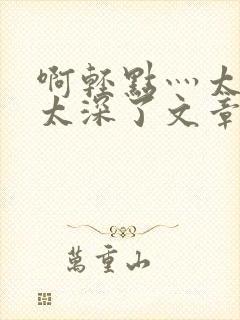 啊轻點灬太
太深了文章
萬重山